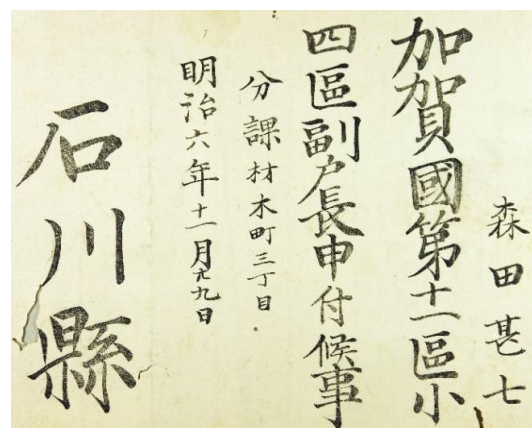 森田甚七
加賀國第十一區小
四區副戸長申付候事
分課材木町三丁目
明治六年十一月廿九日
石川縣